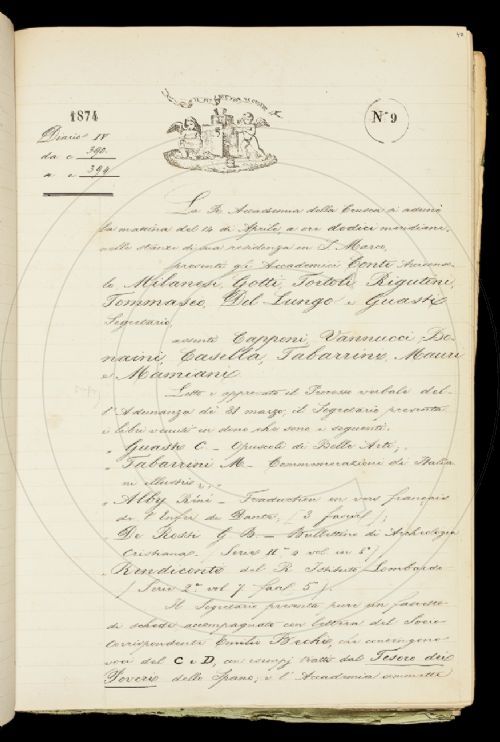 42
1874
N.º 9
Diario IV
da c. 390.
a c. 394
La R. Accademia della Crusca si adunò
la mattina del 14 di Aprile, a ore dodici meridiane,
nelle stanze di sua residenza in S. Marco,
presenti gli Accademici Conti Arcicons.
lo Milanesi, Gotti, Tortoli, Rigutini,
Tommaseo, Del Lungo e Guasti
Segretario,
assenti Capponi, Vannucci, Bo-
naini, Casella, Tabarrini, Mauri
e Mamiani.
Letto e approvato il Processo verbale del-
l'Adunanza de' 31 marzo, il Segretario presenta
i libri venuti in dono che sono i seguenti:
Guasti C. - Opuscoli di Belle Arti;
Tabarrini M. - Commemorazione di Italia-
ni illustri;
Alby - Traduction en vers français
de l'Enfer de Dante, (3 fascic.);
De Rossi G. B. - Bullettino di Archeologia
Cristiana. Serie II.ª vol. in 5°)
Rendiconto del R. Istituto Lombardo
(Serie 2.ª vol. 7. fasc. 5).
Il Segretario presenta pure un fascetto
di schede accompagnate con lettera del Socio
Corrispondente Emilio Bechi, che contengono
voci del C e D, con esempj tratti dal Tesoro dei
Poveri dello Spano; e l'Accademia commette